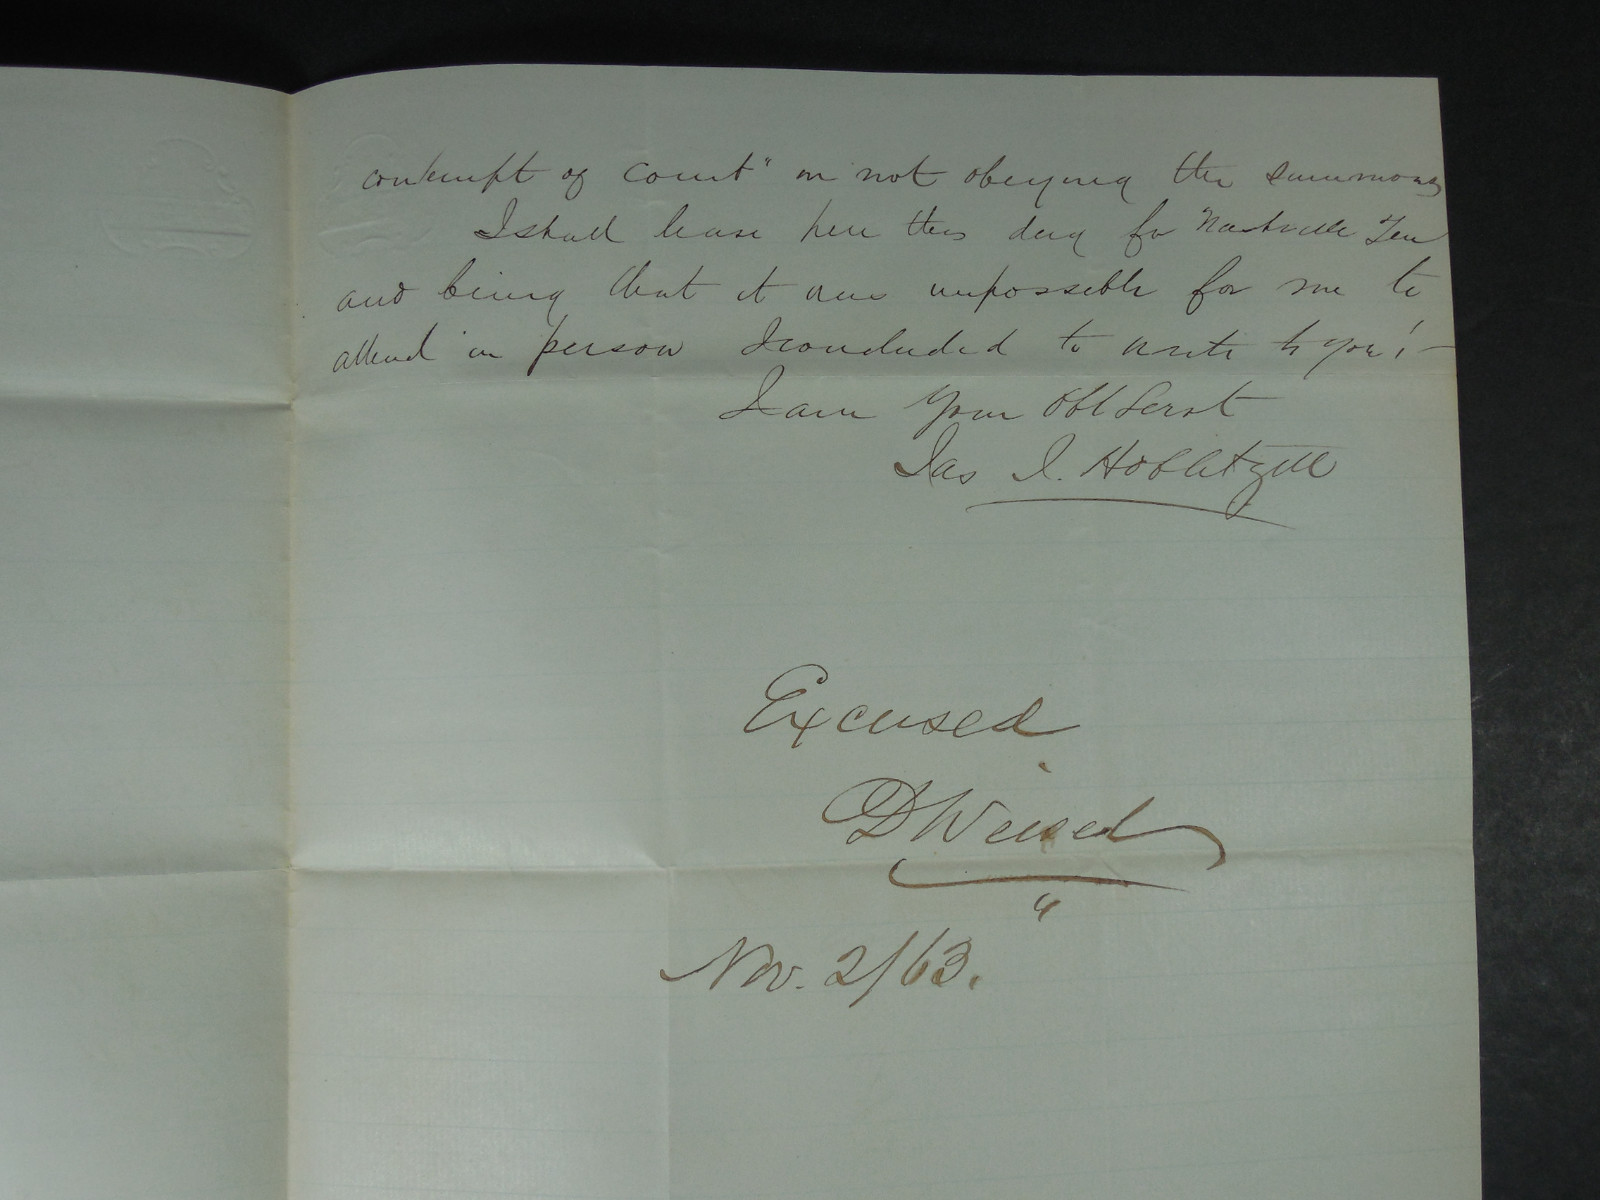 contempt of court" in not obeying the summons
I shall leave here this day for Nashville Ten
and being that it was impossible for me to
attend in person I concluded to write to you! —
I am Your Obt Servt
Jas I. Hoblitzell
Excused
D Weisel
"
Nov. 2/63.